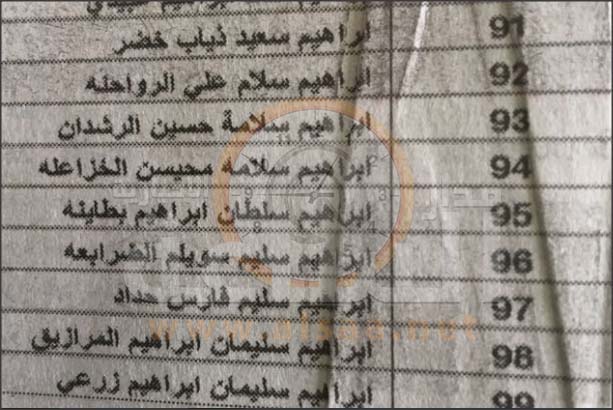 91 ابراهيم سعيد ذياب خضر
92 ابراهيم سلام علي الرواحنه
93 ابراهيم سلامة حسين الرشدان
94 ابراهيم سلامه محيسن الخزاعله
95 ابراهيم سلطان ابراهيم بطاينه
96 ابراهيم سليم سويلم الضرابعه
97 ابراهيم سليم فارس حداد
98 ابراهيم سليمان ابراهيم المرازيق
99 ابراهيم سليمان ابراهيم زرعي